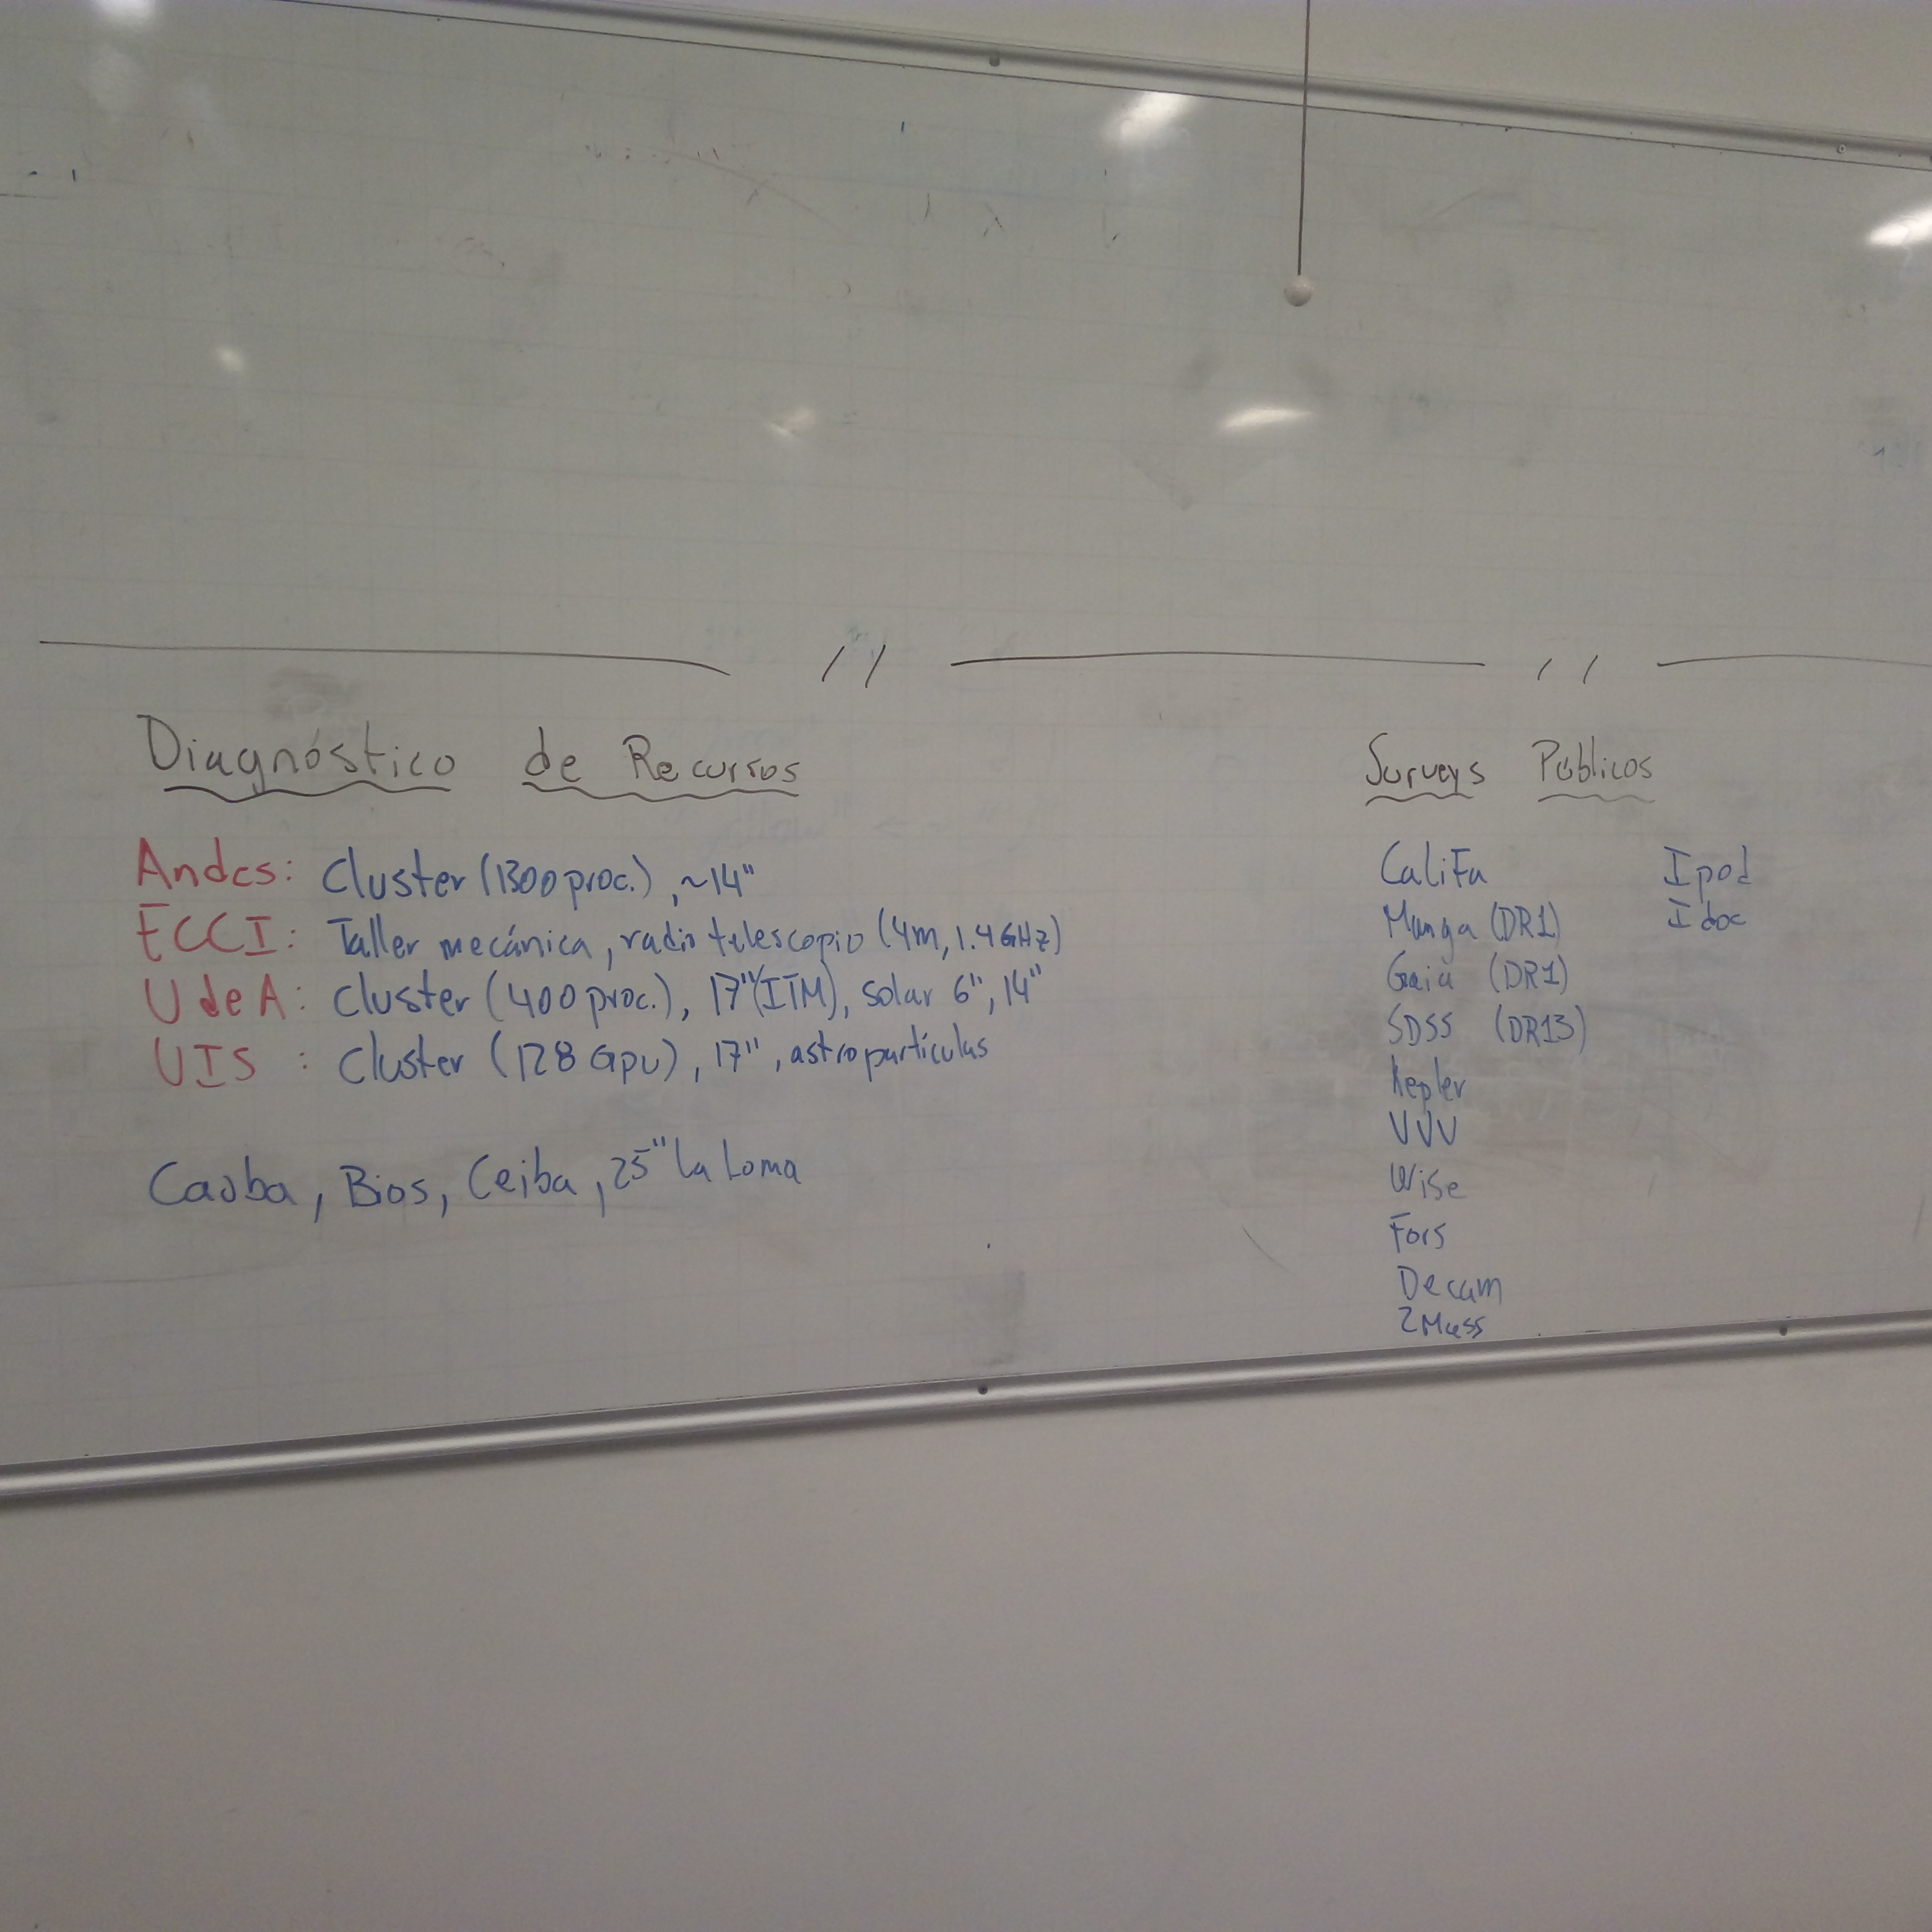 Diagnóstico de Recursos
Andes: Cluster (1300 proc.), ~14"
ECCI: Taller mecánica, radio telescopio (4m, 1.4 GHz)
U de A: Cluster (400 proc.), 17" (ITM), solar 6", 14"
UIS : Cluster (128 Gpu), 17", astropartículas
Caoba, Bios, Ceiba, 25" la Loma
Surveys Públicos
Califa
Manga (DR1)
Gaia (DR1)
SDSS (DR13)
Kepler
VVV
Wise
Fors
Decam
2Mass
Ipod
Idoc